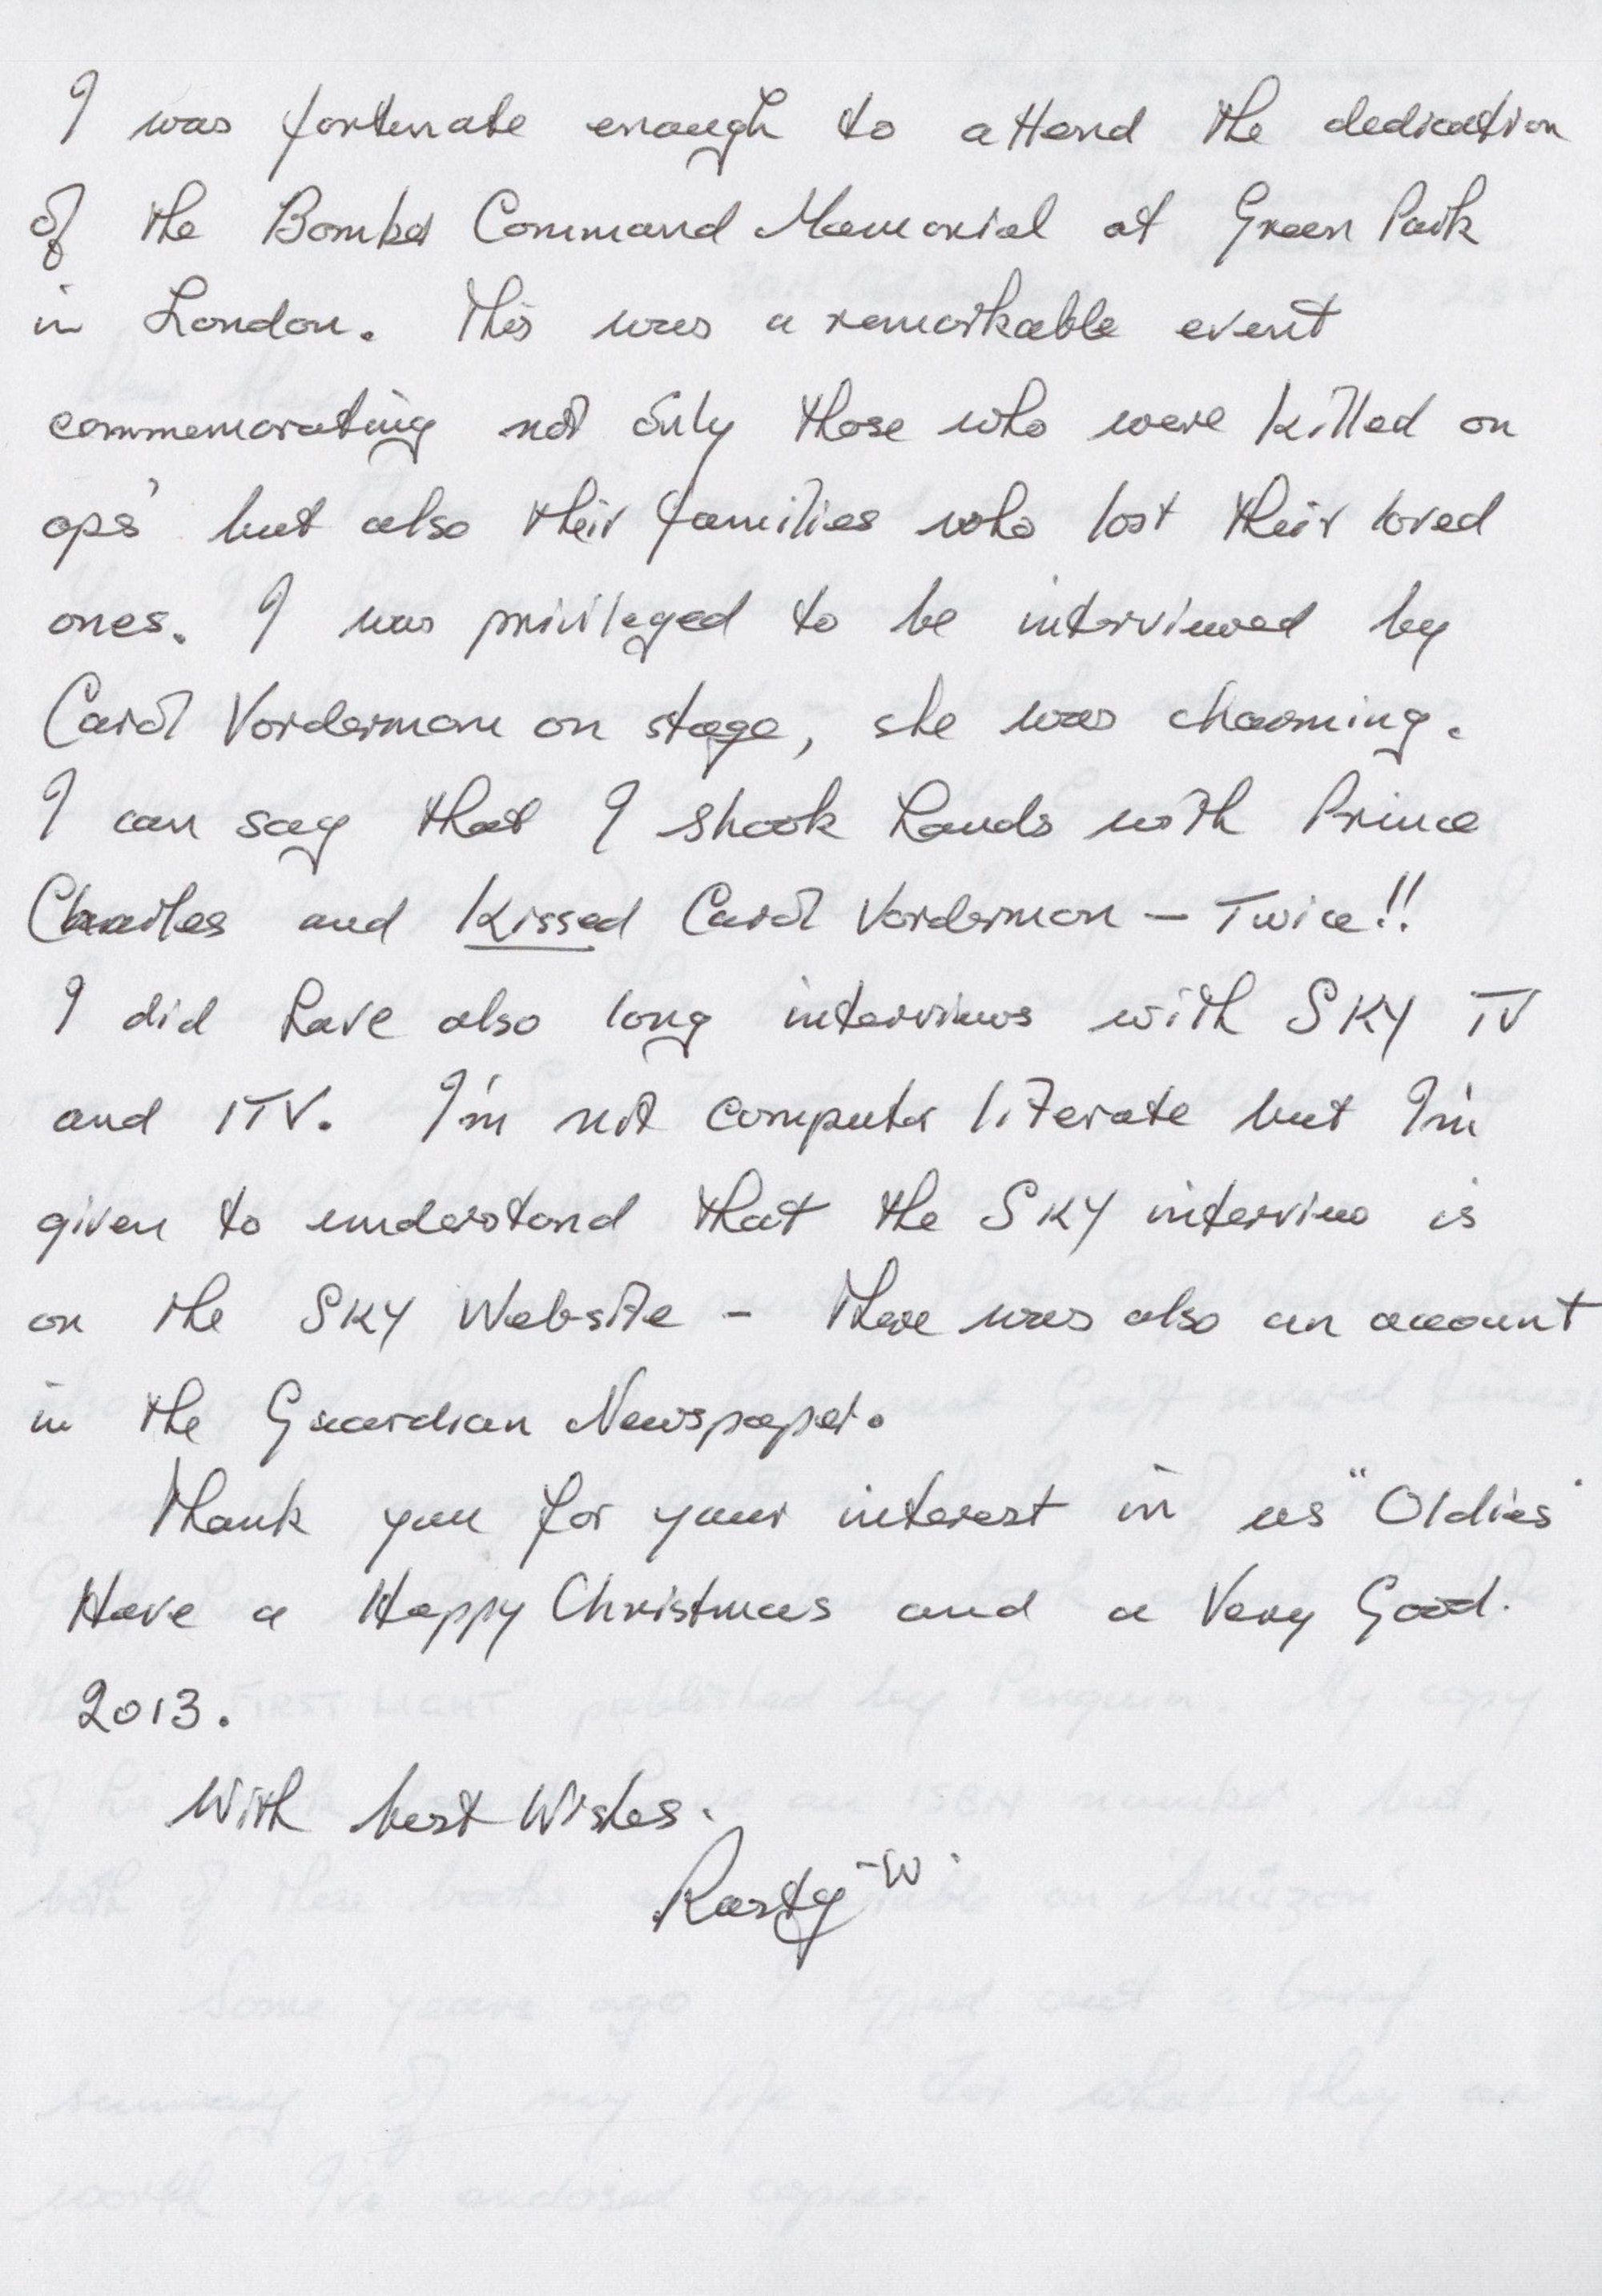 I was fortunate enough to attend the dedication
of the Bomber Command Memorial at Green Park
in London. This was a remarkable event
commemorating not only those who were killed on
ops' but also their families who lost their loved
ones. I was privileged to be interviewed by
Carol Vorderman on stage, she was charming.
I can say that I shook hands with Prince
Charles and Kissed Carol Vorderman – Twice!!
I did have also long interviews with SKY TV
and ITV. I'm not computer literate but I'm
given to understand that the SKY interview is
on the SKY Website – there was also an account
in the Guardian Newspaper.
Thank you for your interest in us "Oldies"
Have a Happy Christmas and a Very Good.
2013.
With best Wishes.
Rusty -W.